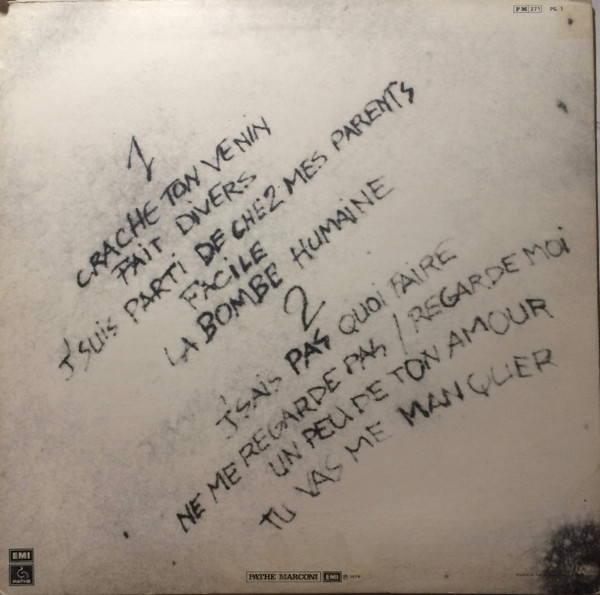 PM 271 PG. 1
1
CRACHE TON VENIN
FAIT DIVERS
J'SUIS PARTI DE CHEZ MES PARENTS
FACILE
LA BOMBE HUMAINE
2
J'SAIS PAS QUOI FAIRE
NE ME REGARDE PAS / REGARDE MOI
UN PEU DE TON AMOUR
TU VAS ME MANQUER
EMI
PATHE
PATHE MARCONI EMI ℗ 1979